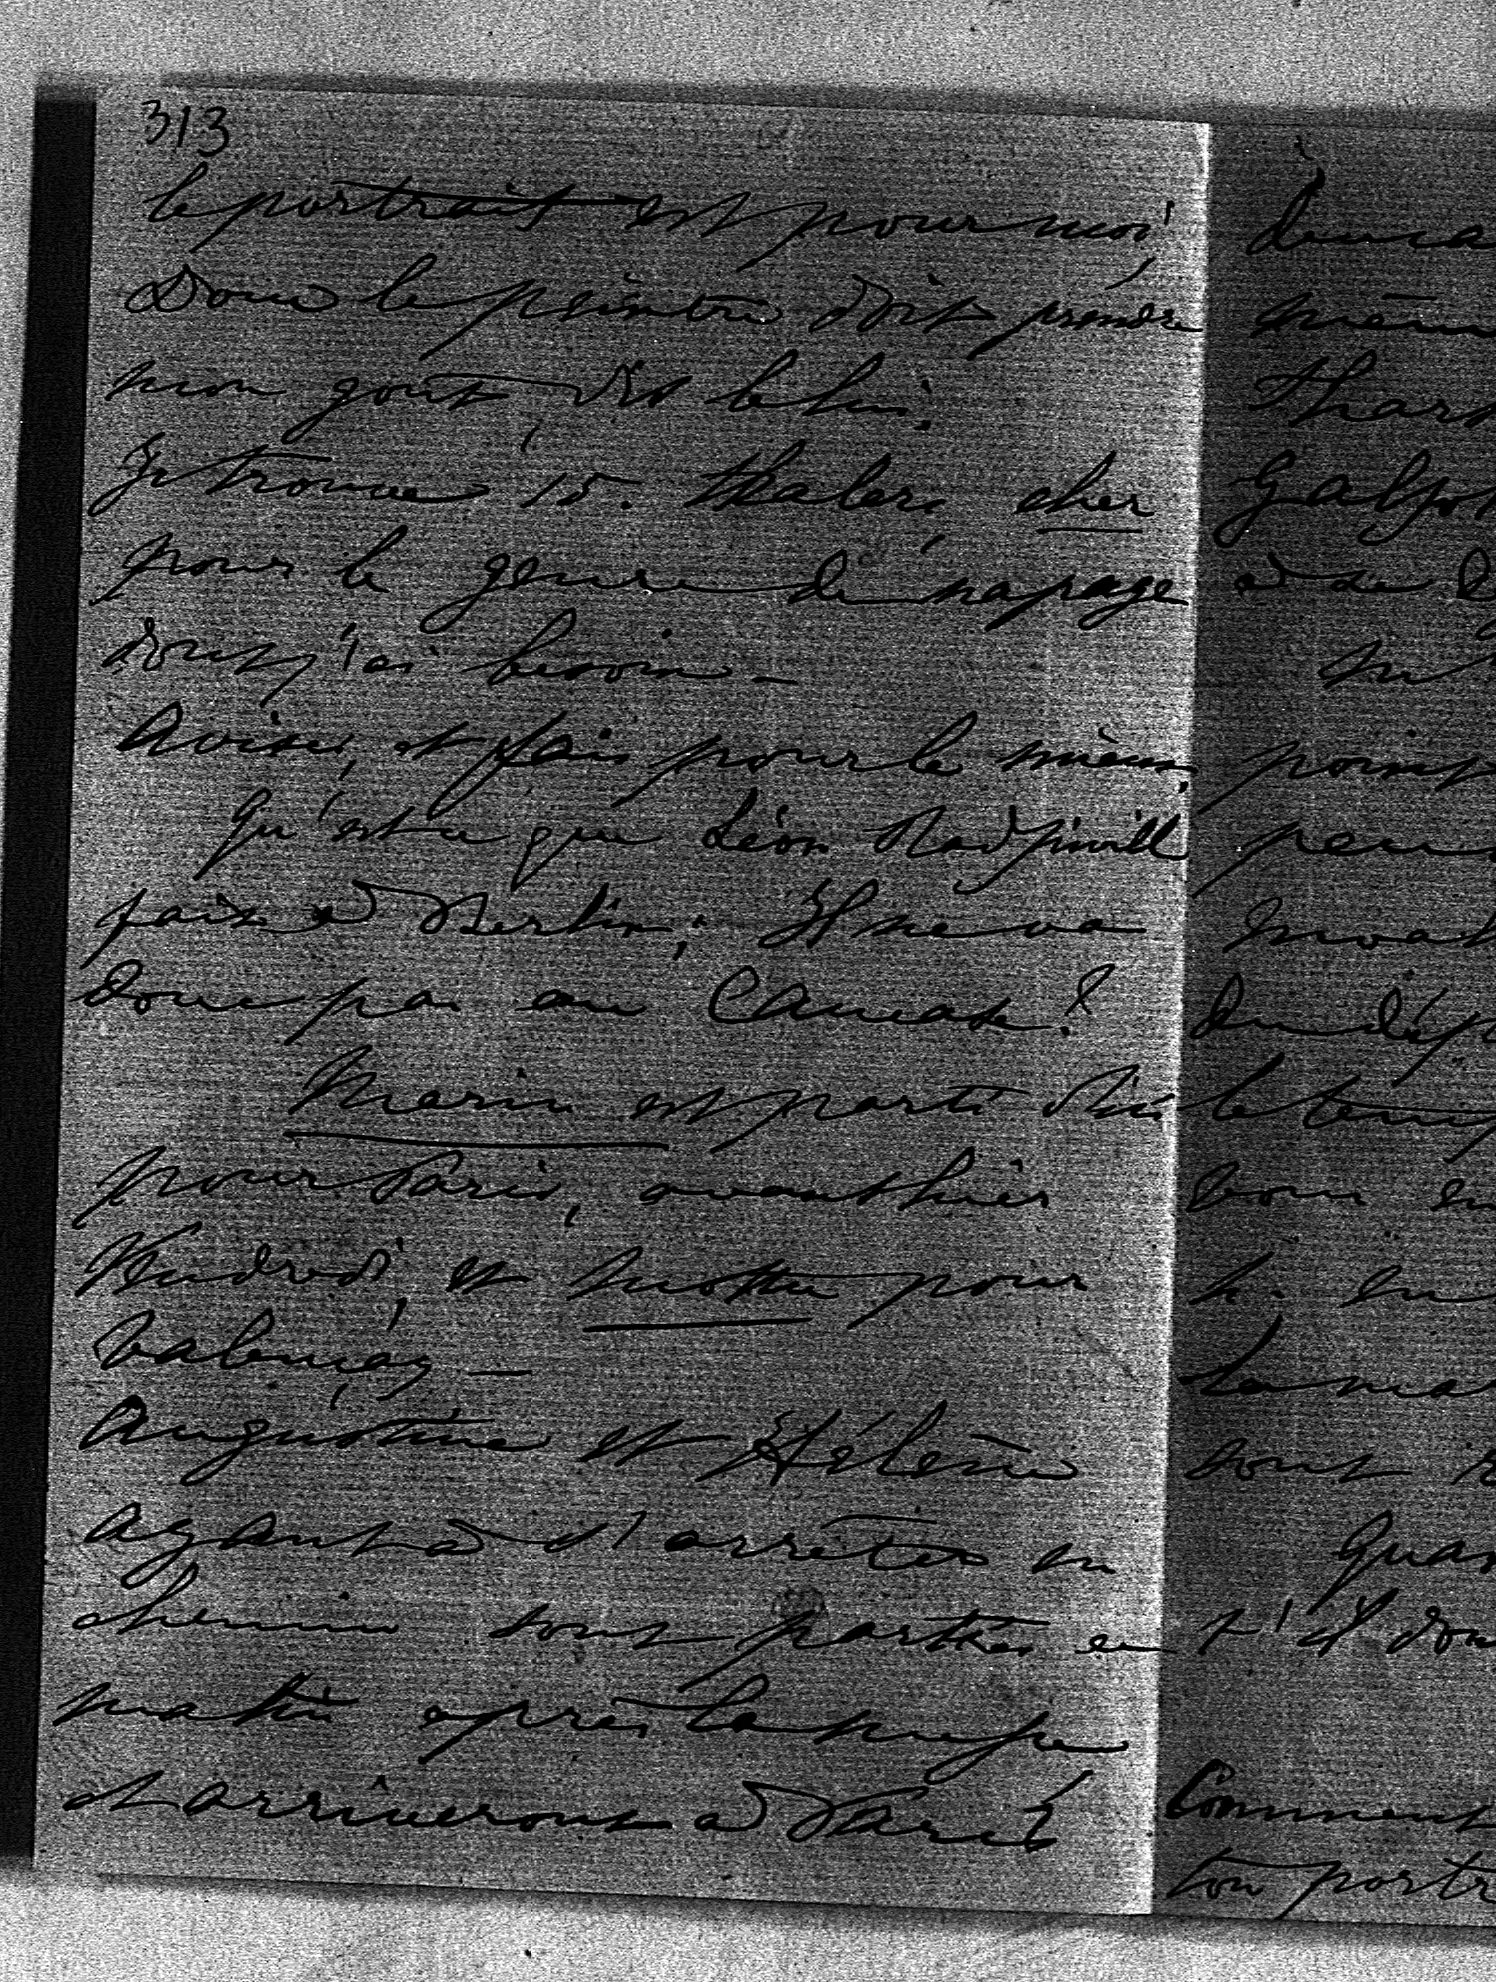 313
le portrait est pour moi
Donc le peintre doit prendre
mon gout, dis le lui.
Je trouve 15. thalers cher
pour le genre de napage
dont j'ai besoin —
Avise, et fais pour le mieux.
Qu'est ce que Léon Radziwill
fait à Berlin; Il ne va
donc pas au Caucase?
Marin est parti d'ici
pour Paris, avanthier
Vendredi, et pour
Valençay —
Augustine et Hélène
ayant à s'arrêter en
chemin sont parties ce
matin après la messe
et arriveront à Paris
dema
même
Galp
à se
pein
du dép
le temp
bon en
h. en
La ma
sont
Quan
t'il don
Comment
ton portr